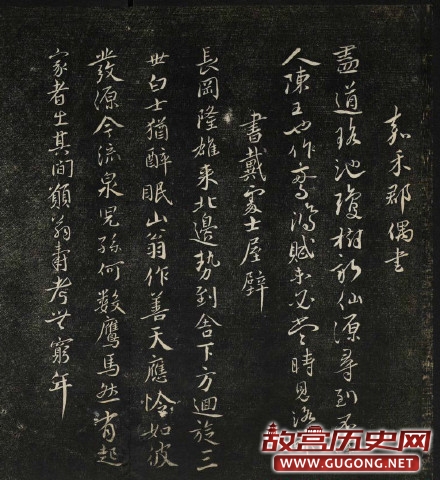 嘉禾郡偶書
盡道瑤池瓊樹新仙源尋到不
人陳王也作驚鴻賦未必當時見洛
書戴處士屋壁
長岡隆雄來北邊勢到舍下方迴旋三
世白士猶醉眠山翁作善天應憐如彼
發源今流泉兒孫何數鷹馬然有起
家者生其間願翁壽考無窮年
故宫历史网
WWW.GUGONG.NET